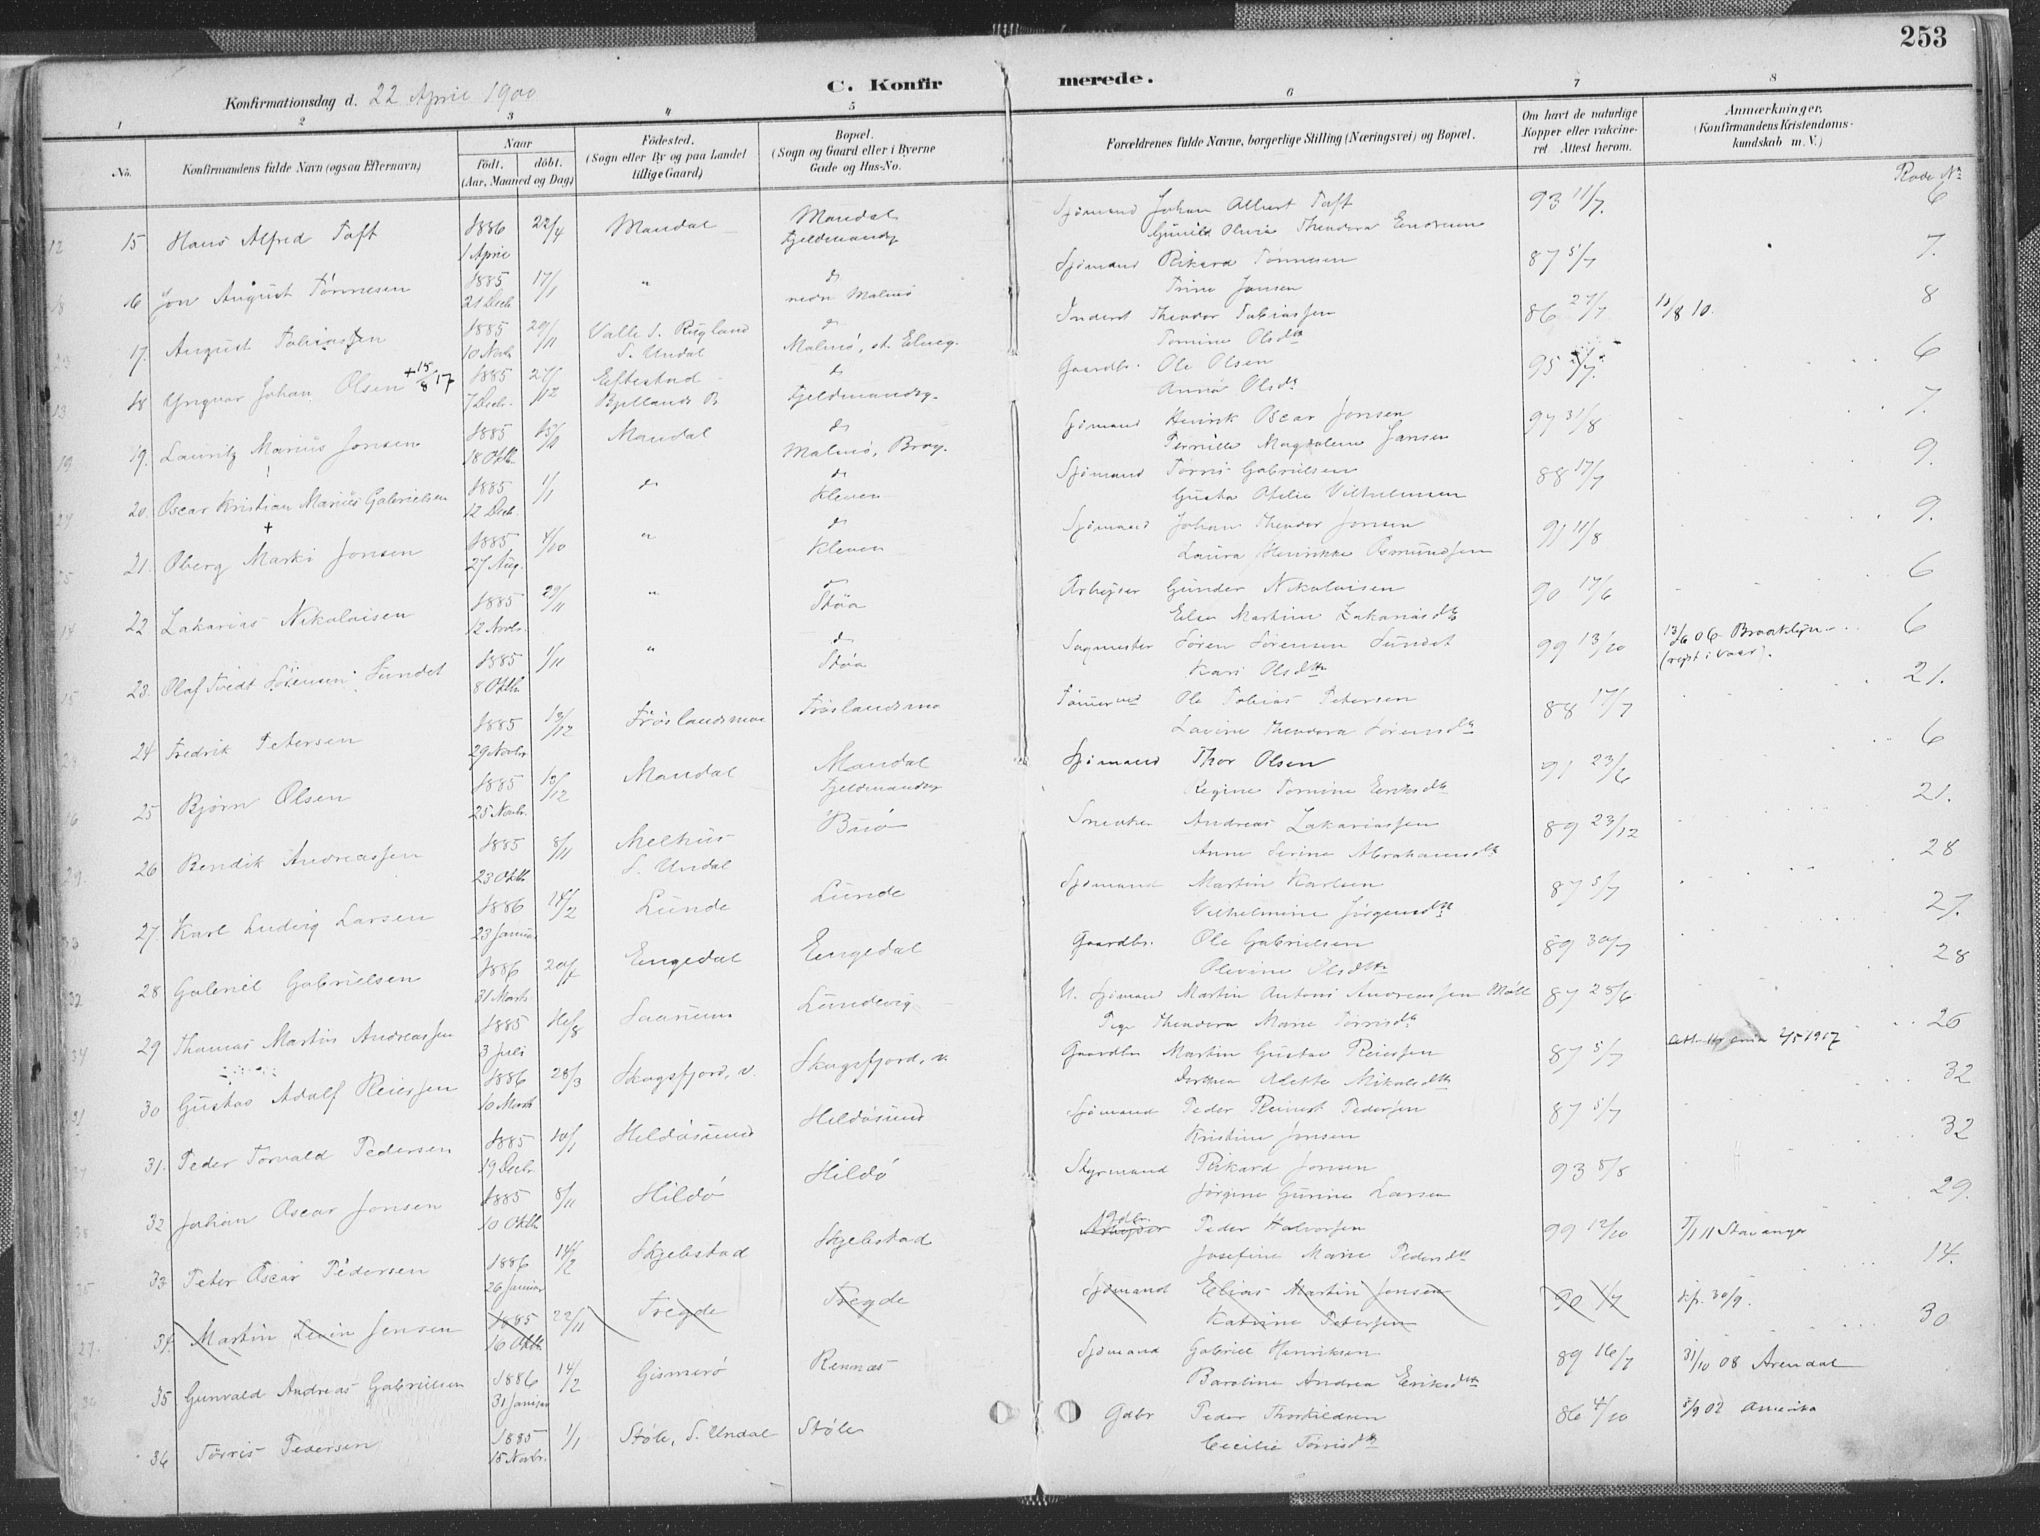 253
C. Konfirmerede.
Konfirmationsdag d. 22 April 1900
1 2 3 4 5 6 7 8
No. Konfirmandens fulde Navn (ogsaa Efternavn) Naar født. døbt. (Aar, Maaned og Dag) Fødested. (Sogn eller By og paa Landet tillige Gaard) Bopæl. (Sogn og Gaard eller i Byerne Gade og Hus-No. Forældrenes fulde Navne, borgerlige Stilling (Næringsvei) og Bopæl. Om havt de naturlige Kopper eller vakcineret. Attest herom. Anmærkninger. (Konfirmandens Kristendomskundskab m. V.)
Rode No
12 15 Hans Alfred Toft 1886 1 April 22/4 Mandal Mandal Sjømand Johan Albert Toft 93 11/7. 6
Gunild Olivia Theodora
16 Jon August Tönnesen 1885 21 Decb. 17/1 " do nedre Malmö Sjömand Rikard Tönnesen 87 5/7 7.
Trine Jonsen
17. August Tobiassen 1885 10 Novb. 20/11 Valle S. Rugland S. Undal do Malmö, Inderst Theodor Tobiassen 86 27/7 8
Tomine Olsdtr
13 18 Yngvar Johan Olsen + 15/8 17 1885 7 Decb. 27/12 Eftestad Bjelland do Gaardbr. Ole Olsen 95 6
Anna Olsdr
19 19. Lauritz Marius Jonsen 1885 18 Oktb. Mandal do Malmö, Sjømand Henrik Oscar Jonsen 97 31/8 7.
Pernille Magdalene Jansen
20. Oscar Kristian Marius Gabrielsen 1885 12 Decb. 1/1 do do Kleven Sjømand Törris Gabrielsen 88 17/7 9.
Gusta Otilie Vilhelmsen
21. Oberg Marki Jonsen + 1885 27 Aug. 4/10 " do Kleven Sjømand Johan Theodor Jonsen 91 11/8 9.
Laura Henrikke Osmundsen
14 22 Zakarias Nikolaisen 1885 12 Novb. 29/11 " do Støa Arbeider Gunder Nikolaisen 90 17/6 6
Elen Martine Zakariasdtr
15 23. Olaf Tvedt Sörensen Sundet 1885 8 Oktb. 1/11 " do Støa Sagmester Sören Sörensen Sundet 99 13/10 13/6 06 Brooklyn 6
Kari Olsdtr
24 Fredrik Petersen 1885 29 Novbr 13/12 Fröslandsmoe Fröslandsmo Ole Tobias Petersen 88 17/7 21.
Lavine Theodora Sörensdtr
16 25 Bjørn Olsen 1885 25 Novbr. 13/12 Mandal Mandal Sjømand Thor Olsen 91 23/6 6
Regine Tomine Eriksdtr
29. 26 Bendik Andreassen 1885 23 Oktb. 8/11 Melhus S. Undal Buö Snedker Andreas Zakariassen 89 23/12 21.
Anne Serine Abrahamsdtr
27 Karl Ludvig Larsen 1886 23 Januar 14/2 Lunde Lunde Sjømand Martin Karlsen 87 5/7 28
Vilhelmine Jörgensdtr
32 28 Gabriel Gabrielsen 1886 31 Marts 20/4 Engedal Engedal Gaardbr. Ole Gabrielsen 89 30/7 27.
Olevine Olsdtr
34 29 Thomas Martin Andreassen 1885 3 Juli 16/8 Saanum Lundevig U. Sjømand Martin Antoni Andreassen 87 28/6 28
Pige Theodora Marie Törrisdtr
31 30 Gustav Adolf Reiersen 1886 10 Marts 28/3 Skogsfjord, v. Skogsfjord, v. Gaardbr. Martin Gustav Reiersen 87 5/7 2/5 1907 26
Dorthea Mikalsdtr
31. Peder Torvald Pedersen 1885 19 Decbr. 10/1 Hildösund Hildösund Sjømand Peder Reinert Pedersen 87 5/7 32
Kristine Jonsen
32 Johan Oscar Jonsen 1885 10 Oktb. 8/11 Hildö Hildö Styrmand Rikard Jonsen 93 5/8 32
Jörgine Gurine Larsen
35 33 Peter Oscar Pedersen 1886 26 Januar 14/2 Skjebstad Skjebstad Arbeider Gdbr. Peder Halvorsen 99 12/10 5/1 11 Stavanger 29.
Josefine Marie Pedersdtr
27. 34. Martin Levin Jensen 1885 16 Oktb. 22/11 Tregde Tregde Sjømand Elias Martin Jensen 90 1/7 kf. 30/9. 14.
Katrine Petersen
36 35 Gunvald Andreas Gabrielsen 1886 31 Januar 14/2 Gismerö Rennæs Sjømand Gabriel Henriksen 89 16/7 31/10 08 Arendal 30
Baroline Andrea Eriksdtr
36 Törris Pedersen 1885 15 Novbr. 1/1 Støle, S. Undal Støle Gdbr Peder Thorkildsen 86 4/10 5/9 02 Amerika
Cecilie Törrisdtr